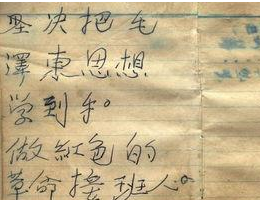 坚决把毛
澤東思想
学到手。
做紅色的
革命接班人。